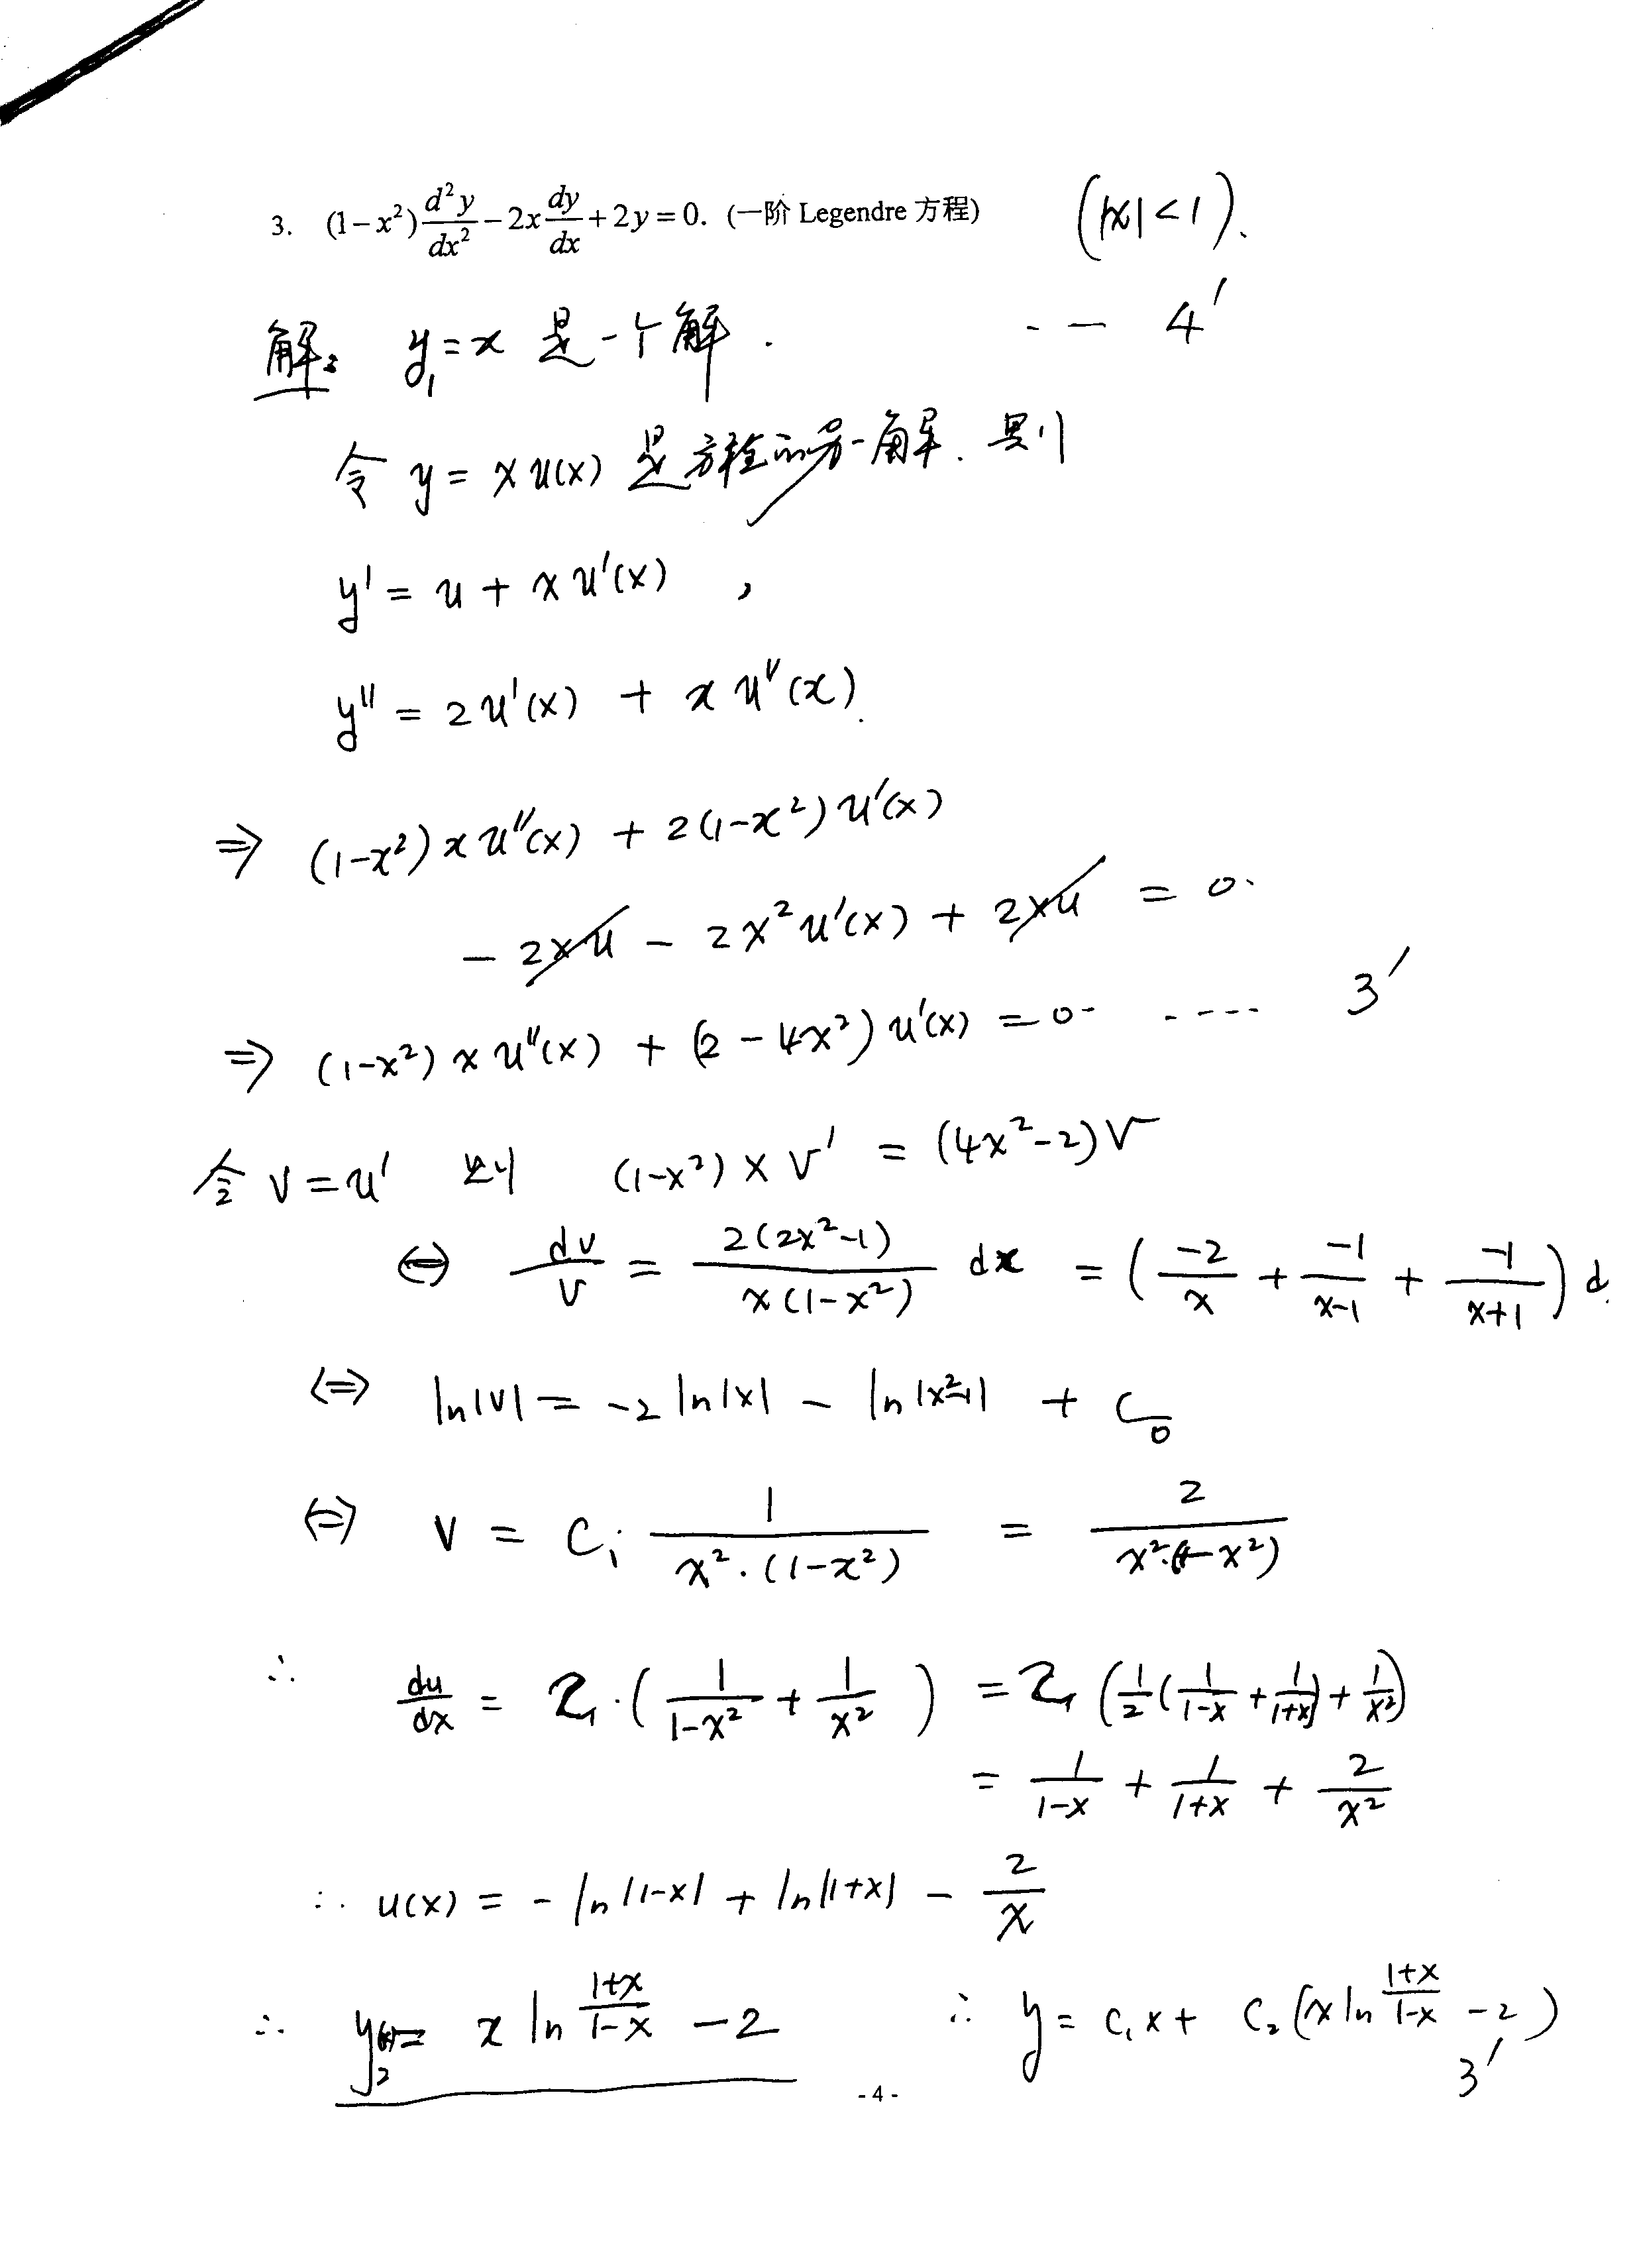 3. (1−x²) d²y/dx² − 2x dy/dx + 2y = 0. (一阶 Legendre 方程) (|x|<1).
解: y₁=x 是一个解. -- 4′
令 y = x u(x) 是方程的另一解. 则
y′ = u + x u′(x) ,
y″ = 2u′(x) + x u″(x).
⇒ (1−x²) x u″(x) + 2(1−x²) u′(x)
− 2xu − 2x² u′(x) + 2xu = 0.
⇒ (1−x²) x u″(x) + (2 − 4x²) u′(x) = 0. ---- 3′
令 v = u′ 则 (1−x²) x v′ = (4x²−2) v
⇔ dv/v = 2(2x²−1)/(x(1−x²)) dx = (−2/x + −1/(x−1) + −1/(x+1)) d
⇔ ln|v| = −2 ln|x| − ln|x²−1| + C₀
⇔ v = C₁ 1/(x²·(1−x²)) = 2/(x²·(1−x²))
∴ du/dx = 2·(1/(1−x²) + 1/x²) = 2(1/2(1/(1−x) + 1/(1+x)) + 1/x²)
= 1/(1−x) + 1/(1+x) + 2/x²
∴ u(x) = − ln|1−x| + ln|1+x| − 2/x
∴ y₂(x) = x ln (1+x)/(1−x) − 2 ∴ y = C₁x + C₂(x ln (1+x)/(1−x) − 2)
3′
- 4 -